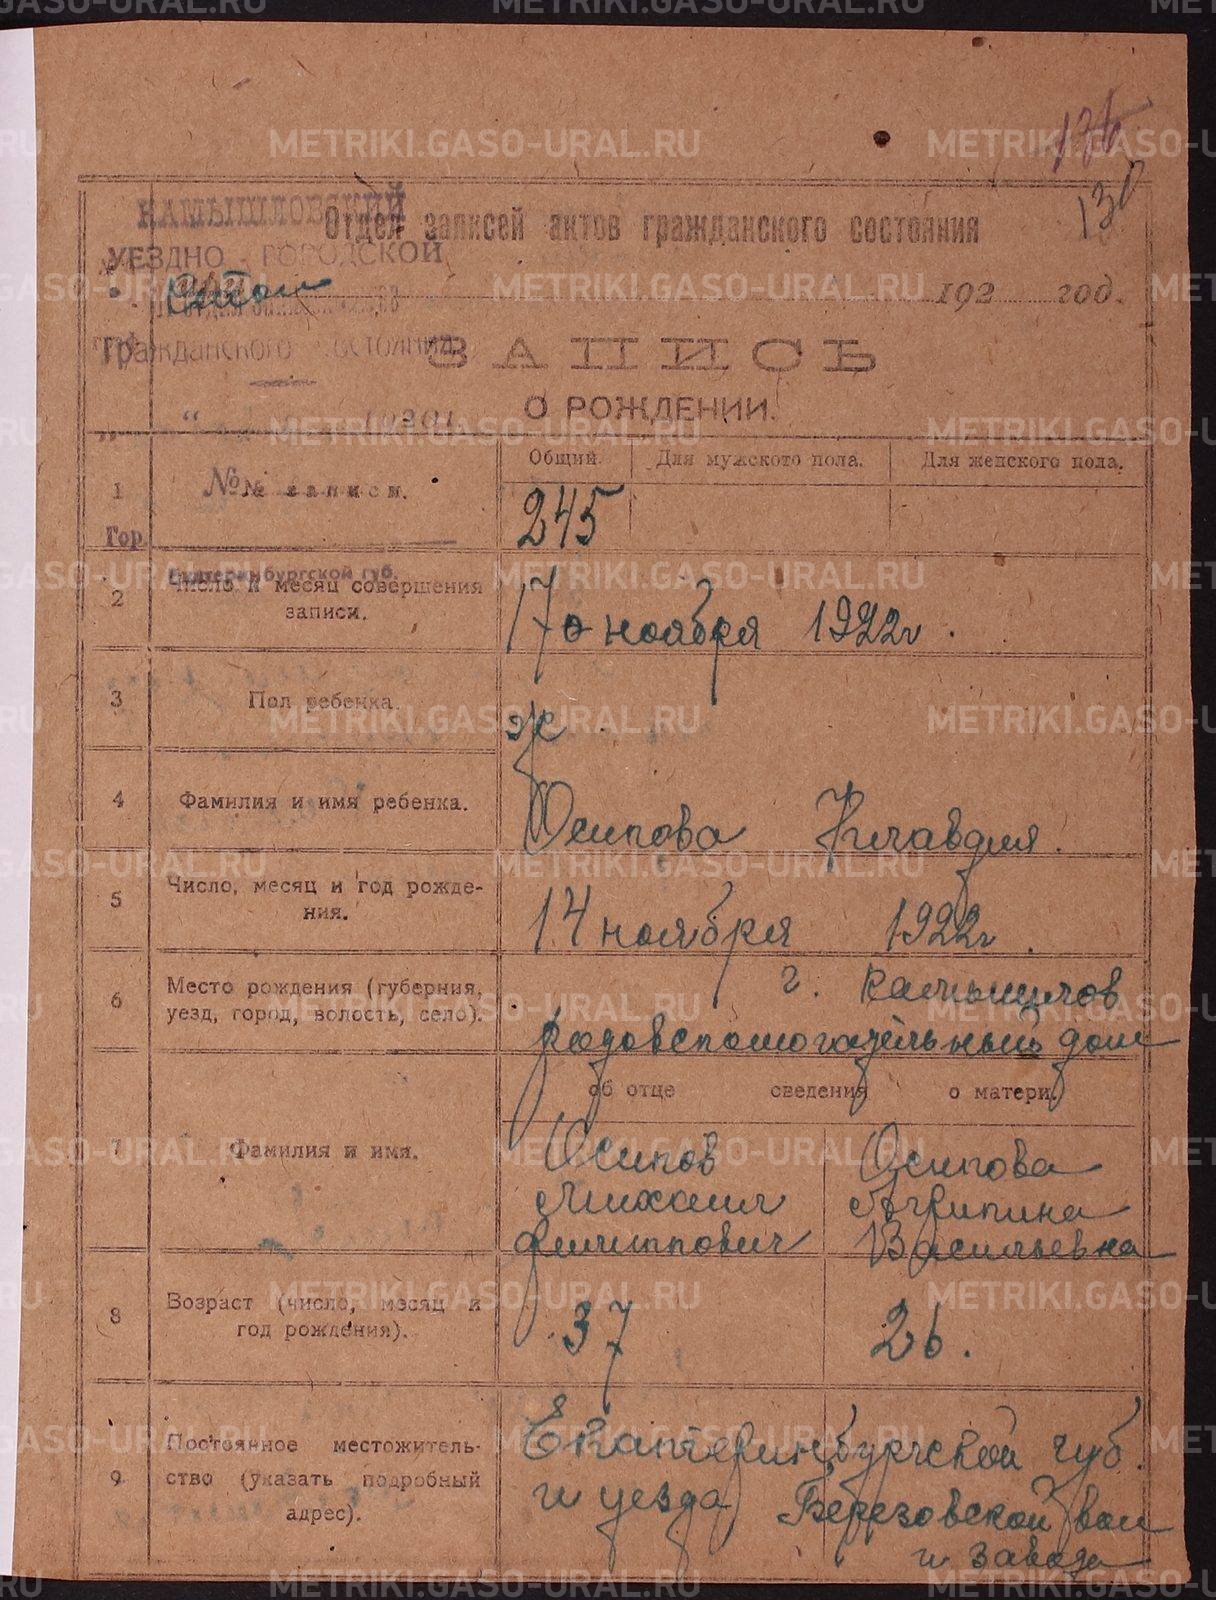 130
КАМЫШЛОВСКИЙ
Отдел записей актов гражданского состояния
УЕЗДНО-ГОРОДСКОЙ
192 год.
Гражданского состояния
ЗАПИСЬ
О РОЖДЕНИИ.
Общий. Для мужского пола. Для женского пола.
1 №№ записи. 245
Гор.
Екатеринбургской губ.
2 Число и месяц совершения
записи.
17о ноября 1922г.
3 Пол ребенка. ж
4 Фамилия и имя ребенка. Осипова Клавдия.
5 Число, месяц и год рожде-
ния.
14 ноября 1922г.
6 Место рождения (губерния,
уезд, город, волость, село).
г. Камышлов
родовспомогательный дом
об отце сведения о матери.
7 Фамилия и имя.
Осипов Осипова
Михаил Агрипина
Филиппович Васильевна
8 Возраст (число, месяц и
год рождения).
37 26.
9 Постоянное местожитель-
ство (указать подробный
адрес).
Екатеринбургской губ.
и уезда Березовской вол
и завода
METRIKI.GASO-URAL.RU